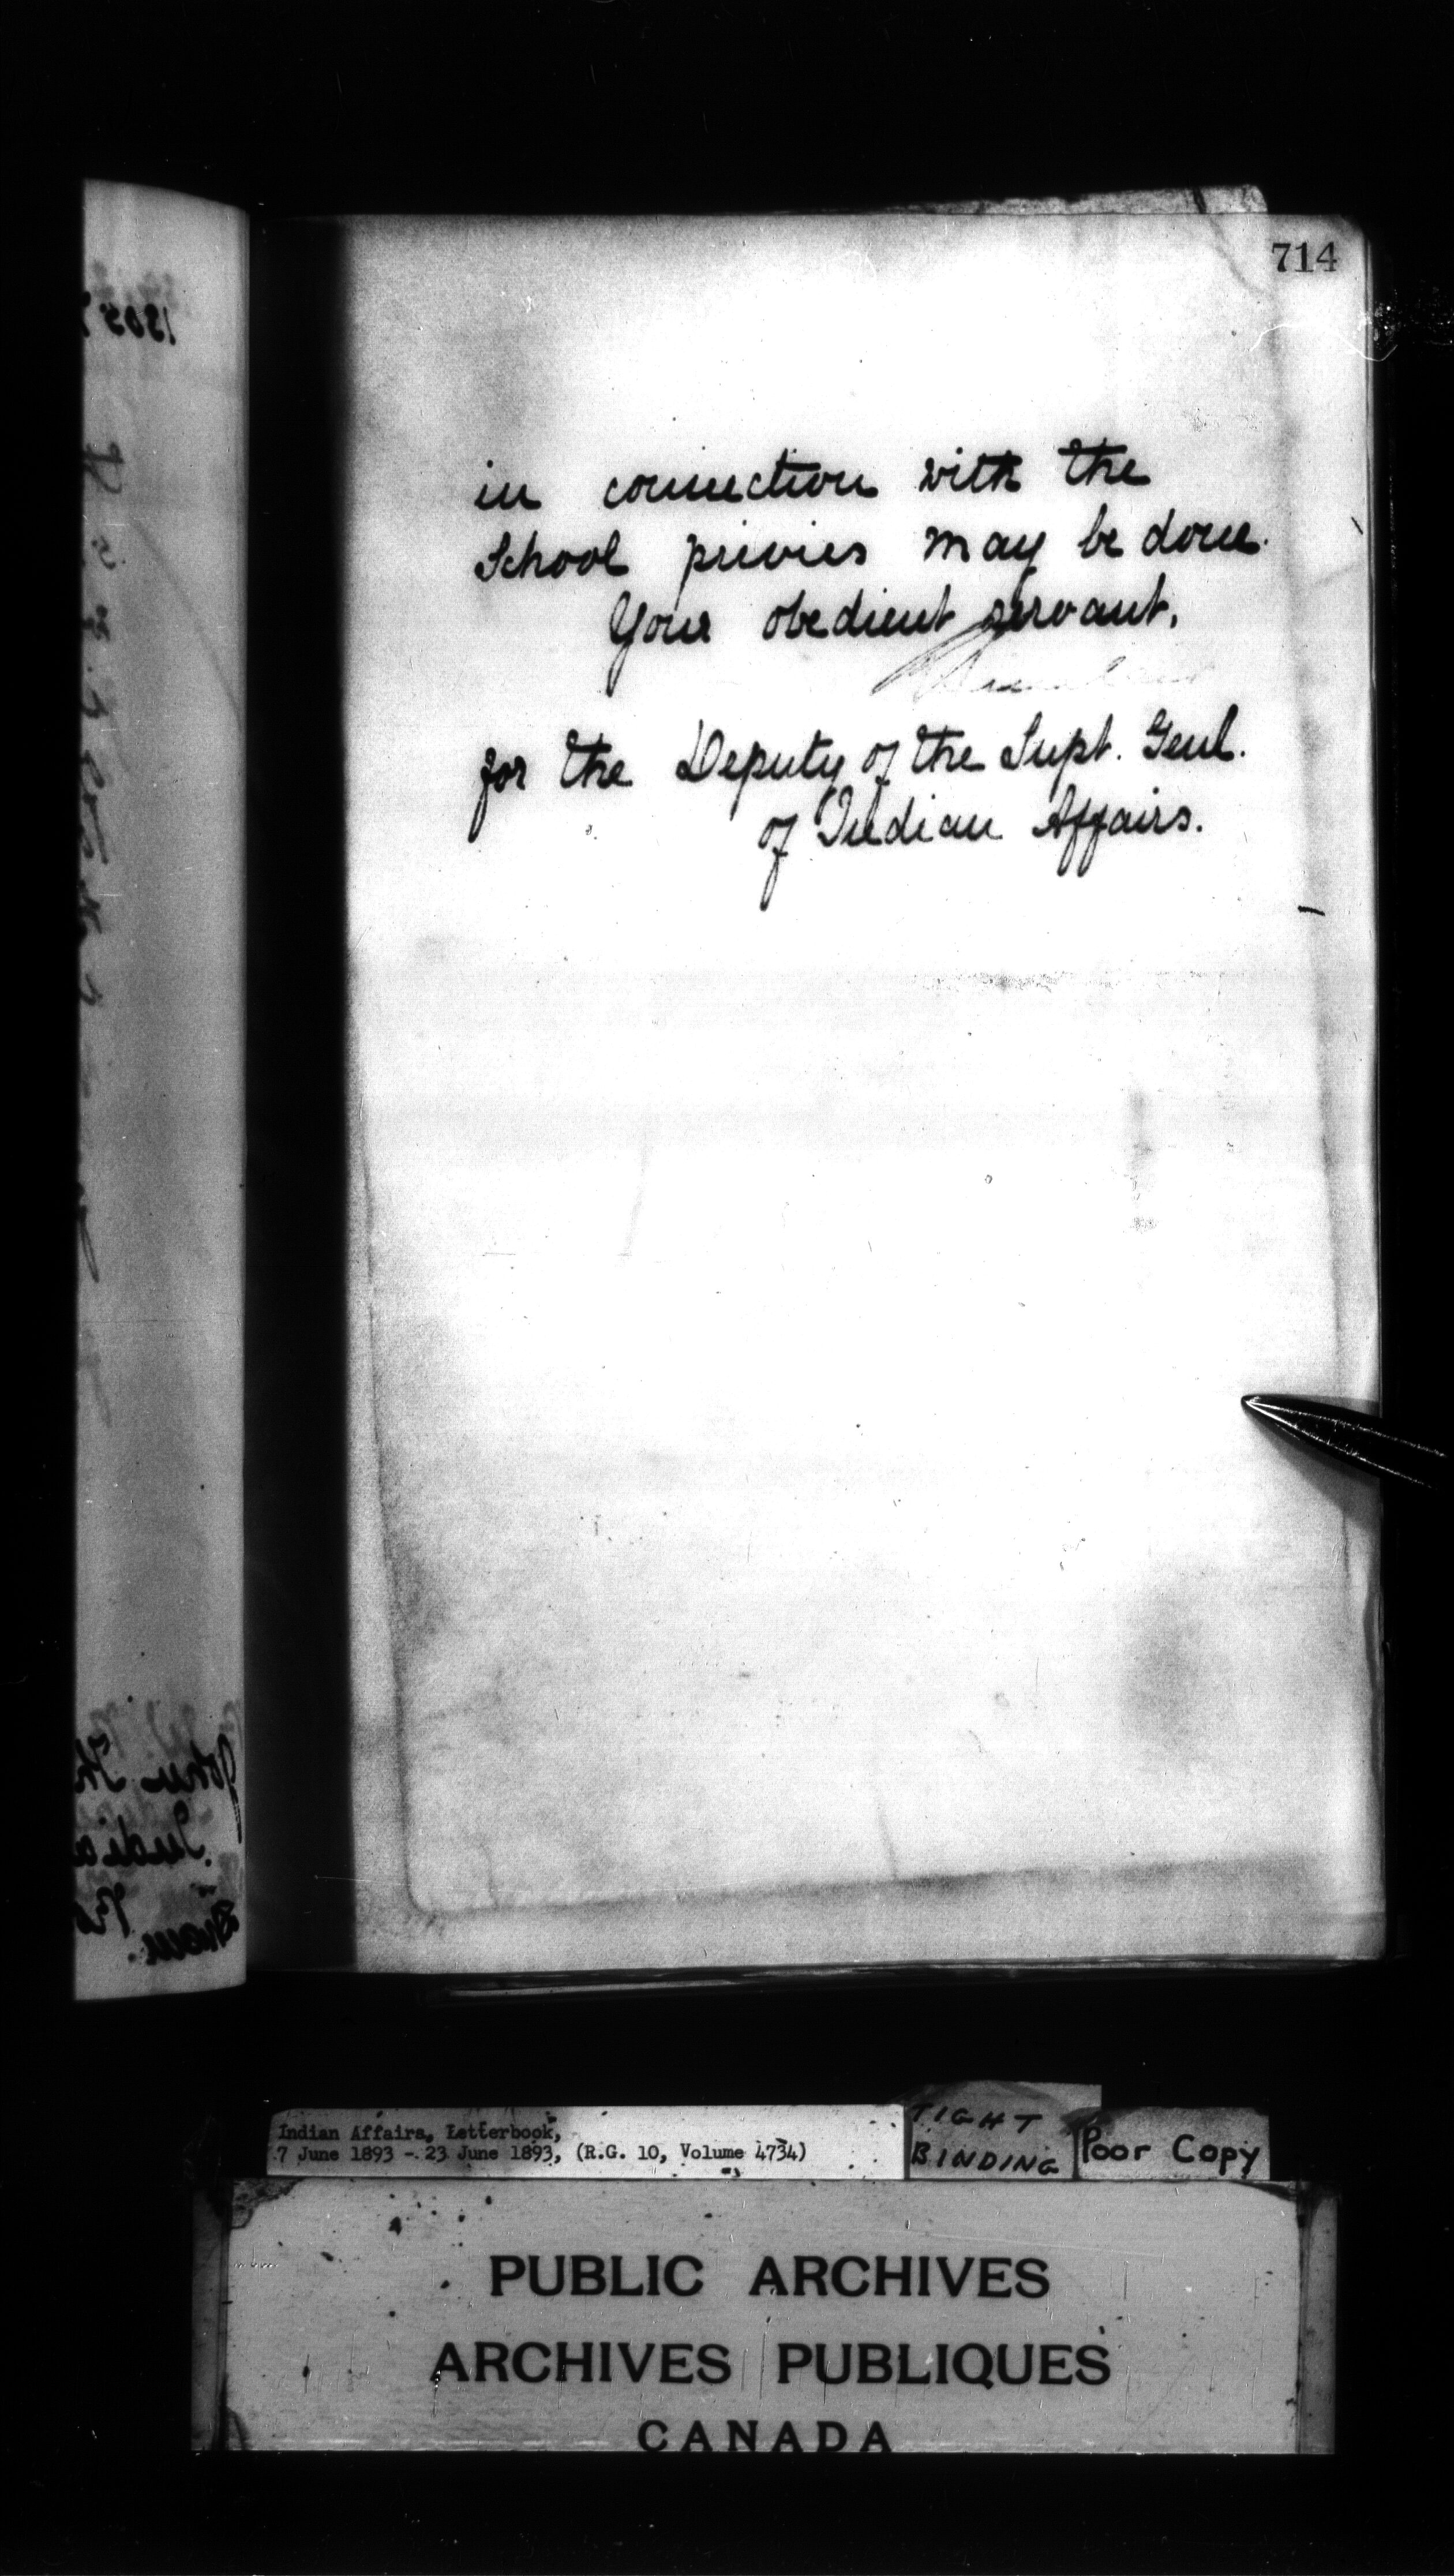 714
in connection with the
School privies may be done.
Your obedient servant,
for the Deputy of the Supt. Genl.
of Indian Affairs.
Indian Affairs, Letterbook,
7 June 1893 - 23 June 1893, (R.G. 10, Volume 4734)
TIGHT
BINDING
Poor Copy
PUBLIC ARCHIVES
ARCHIVES PUBLIQUES
CANADA